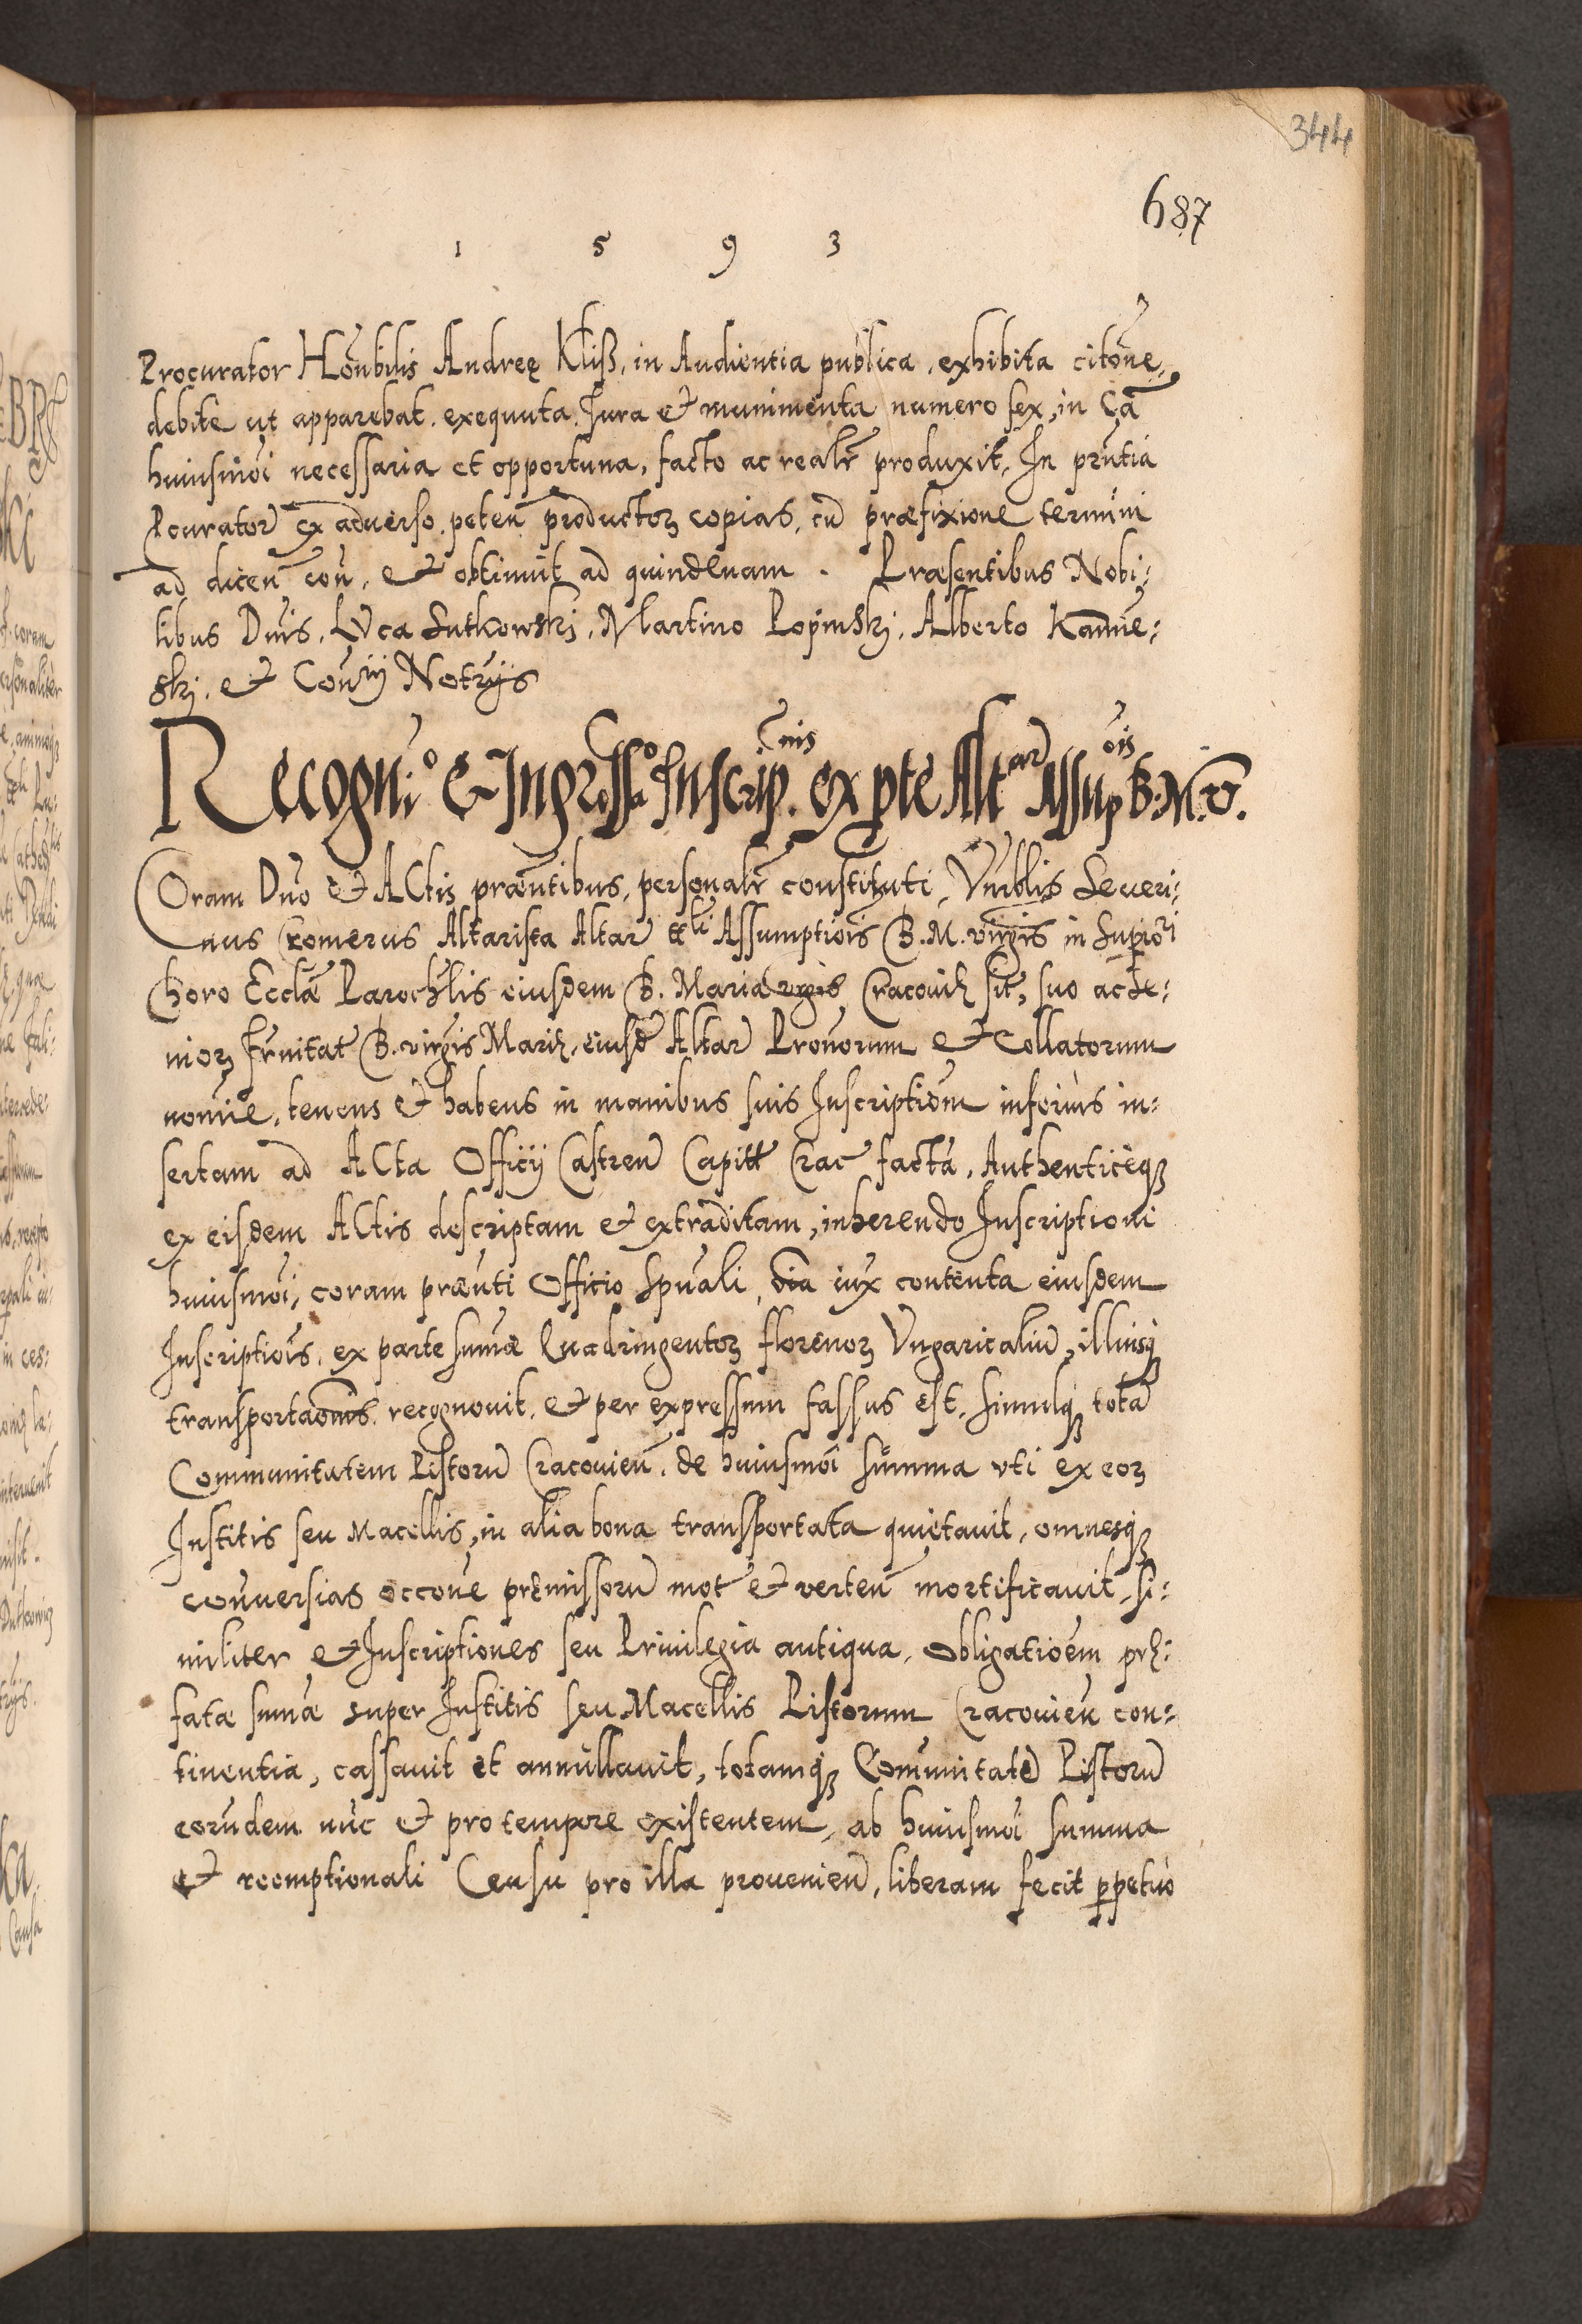 344
687
1 5 9 3
Procurator Honbilis Andreę Kliß, in Audientia publica, exhibita citone,
debite ut apparebat. exequuta. Jura et munimenta numero sex, in Ca
huiusmoi necessaria et opportuna, facto ac realr produxit, In prntia
Pcurator ex aduerso. peten productoꝝ copias, cu præfixione termini
ad dicen con, et obtinuit ad quindenam. Præsentibus Nobi:
libus Dnis. Luca Lutkowskj, Martino Lopinskj, Alberto Kamie:
skj. et Conrij Notrijs
Recognio et Ingrossao Inscripnis ex pte Altar Assupois B. M. V.
Coram Dno et Actis præntibus, personalr constituti, Vnrblis Seueri:
nus Cromerus Altarista Altar ttli Assumptiois B. M. virgis in superiori
Choro Ecclæ Parochlis eiusdem B. Maria virgis Cracouię sit, suo ac Se:
nioꝝ frnitat B. virgis Marię, eiusd Altar Prouorum et Collatorum
nomie, tenens et habens in manibus suis Inscriptiom inferius in:
sertam ad Acta Officij Castren Capitt Crac facta, Authenticeqꝫ
ex eisdem Actis descriptam et extraditam, inherendo Inscriptioni
huiusmoi, coram prænti Officio spuali, oia iux contenta eiusdem
Inscriptiois, ex parte sumæ Quadringentoꝝ florenoꝝ Vngaricaliu, illiusqꝫ
transportaonis, recognouit, et per expressum fassus est, simulqꝫ tota
Communitatem Pistoru Cracouien, de huiusmoi summa uti ex eoꝝ
Institis seu Macellis, in alia bona transportata quietauit, omnesqꝫ
conuersias occone premissoru mot et verten mortificauit, si:
militer et Inscriptiones seu Priuilegia antiqua, Obligatioem prę:
fatæ sumæ super Institis seu Macellis Pistorum Cracouien con:
tinentia, cassauit et annullauit, totamqꝫ Comunitate Pistoru
eorudem nuc et pro tempore existentem, ab huiusmoi summa
et reemptionali Censu pro illa prouenien, liberam fecit ppetuo